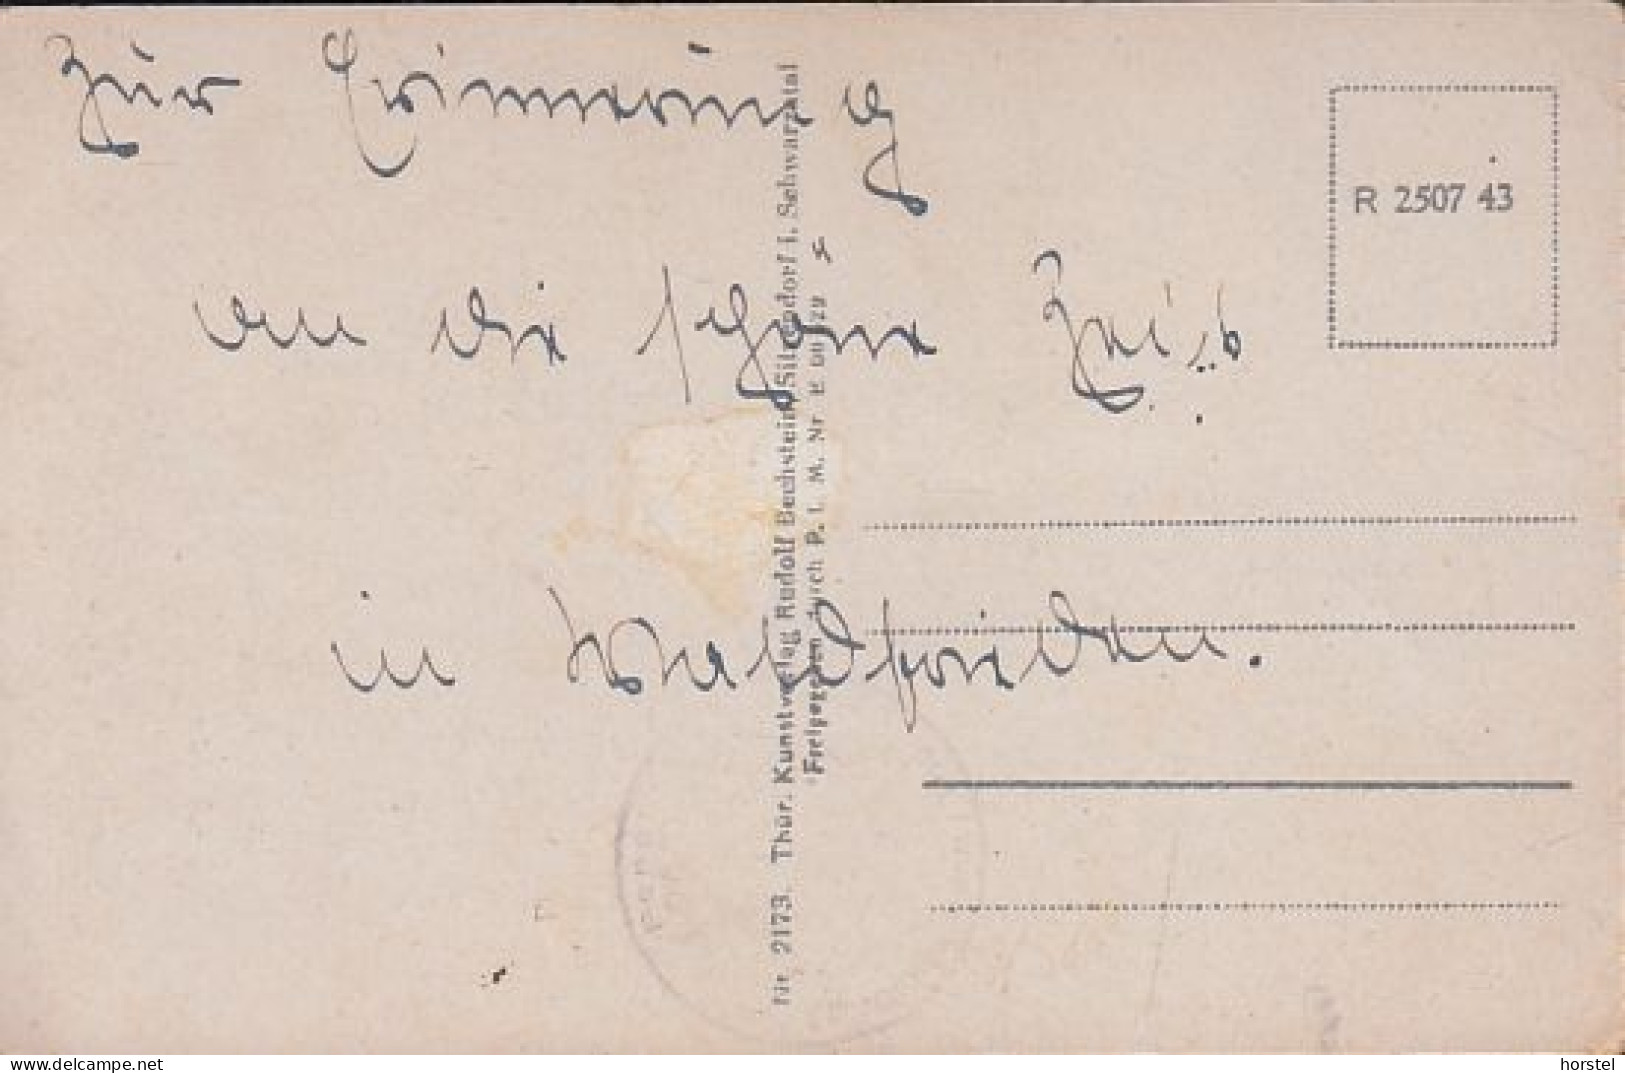 Zur Erinnerung
an die schöne Zeit
in Waldfrieden.
R 2507 43
Nr. 2173. Thür. Kunstverlag Rudolf Bechstein, Sitzendorf i. Schwarzatal
Freigegeben durch P. L. M. Nr.
horstel delcampe.net